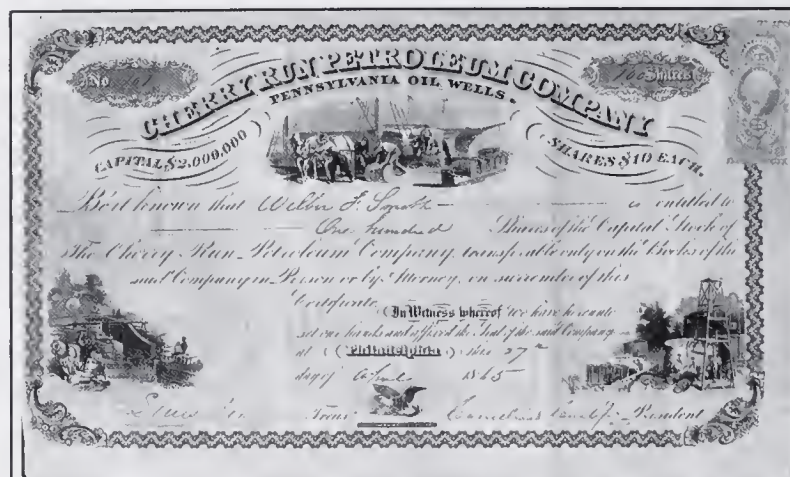 No
100 Shares
CHERRY RUN PETROLEUM COMPANY
PENNSYLVANIA OIL WELLS.
CAPITAL $2,000,000
SHARES $10 EACH.
Be it known that Wilber F. Smith is entitled to
One hundred Shares of the Capital Stock of
The Cherry Run Petroleum Company, transferable only on the Books of the
said Company in Person or by Attorney, on surrender of this
Certificate.
In Witness whereof We have hereunto
set our hands and affixed the Seal of the said Company
at Philadelphia this 27th
day of April 1865
Treas
President